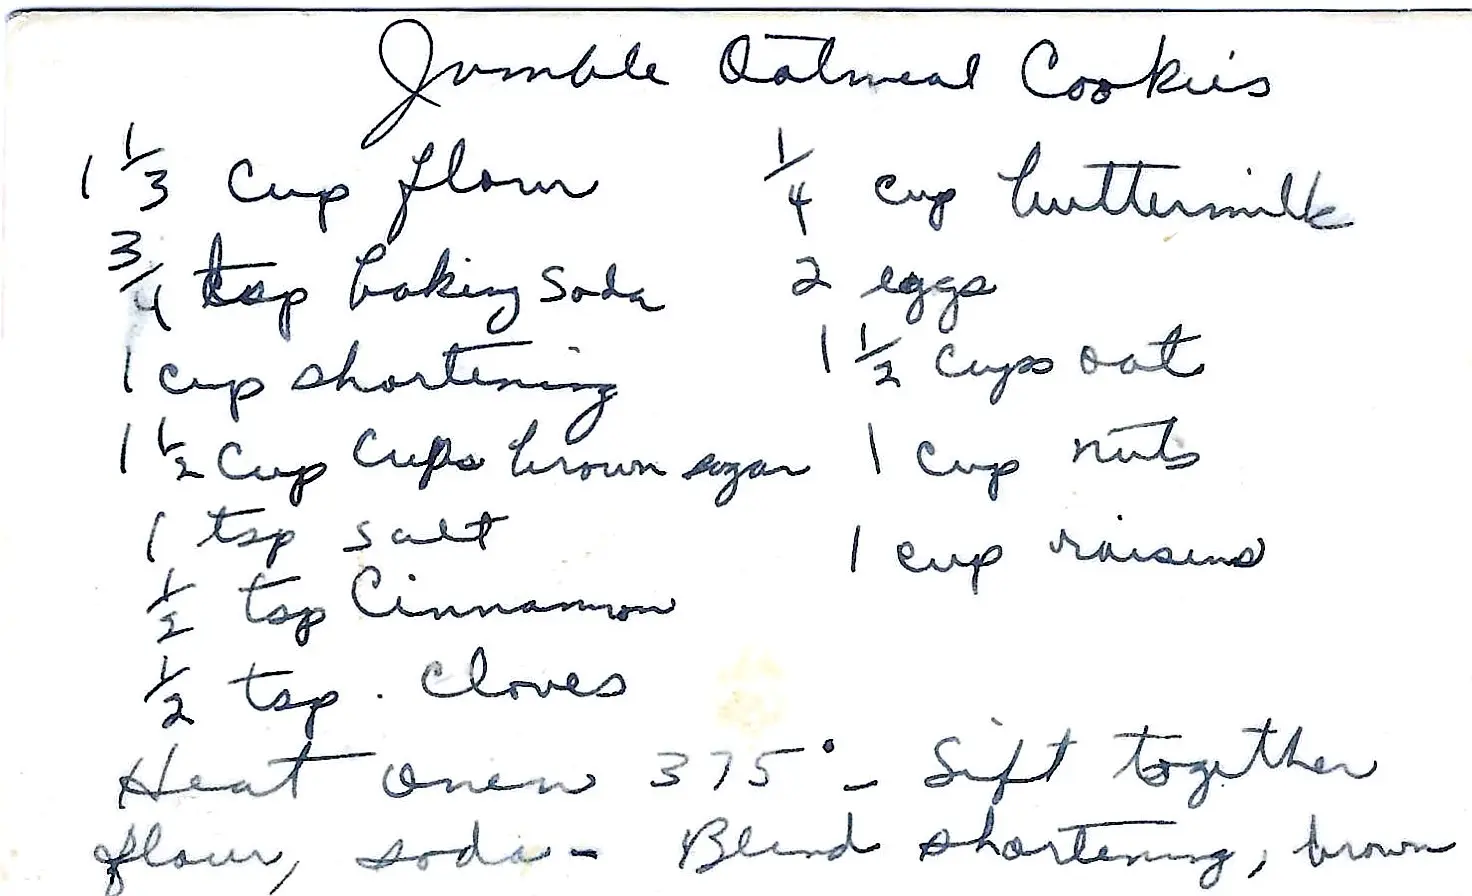 Jumble Oatmeal Cookies
1 1/3 cup flour
3/4 tsp baking soda
1 cup shortening
1 1/2 cup cups brown sugar
1 tsp salt
1/2 tsp cinnamon
1/2 tsp. cloves
1/4 cup buttermilk
2 eggs
1 1/2 cups oat
1 cup nuts
1 cup raisins
Heat oven 375° - Sift together
flour, soda - Blend shortening, brown